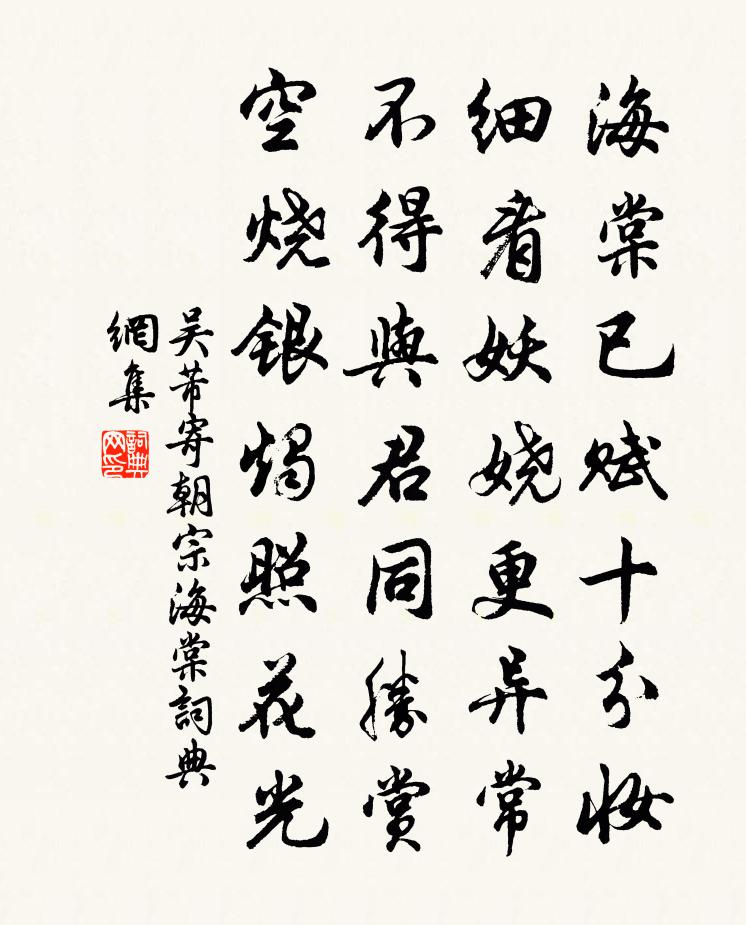 海棠已赋十分妆
细看妖娆更异常
不得與君同勝赏
空烧银烛照花光
吴芾寄朝宗海棠詞典
網集
詞典
网印